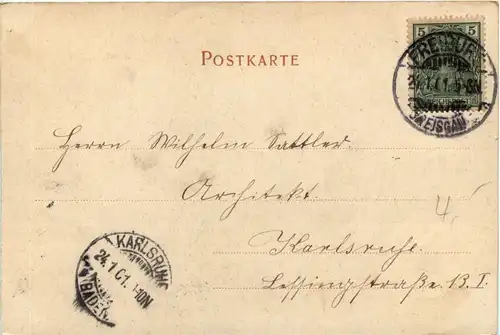 POSTKARTE
5 5
FREIBURG
24.1.01. 5-6N
BREISGAU
Herrn Wilhelm Sattler.
Architekt.
4,
KARLSRUHE
24.1.01. 9-10N
(BADEN)
Karlsruhe.
Lessingstraße 13. I.